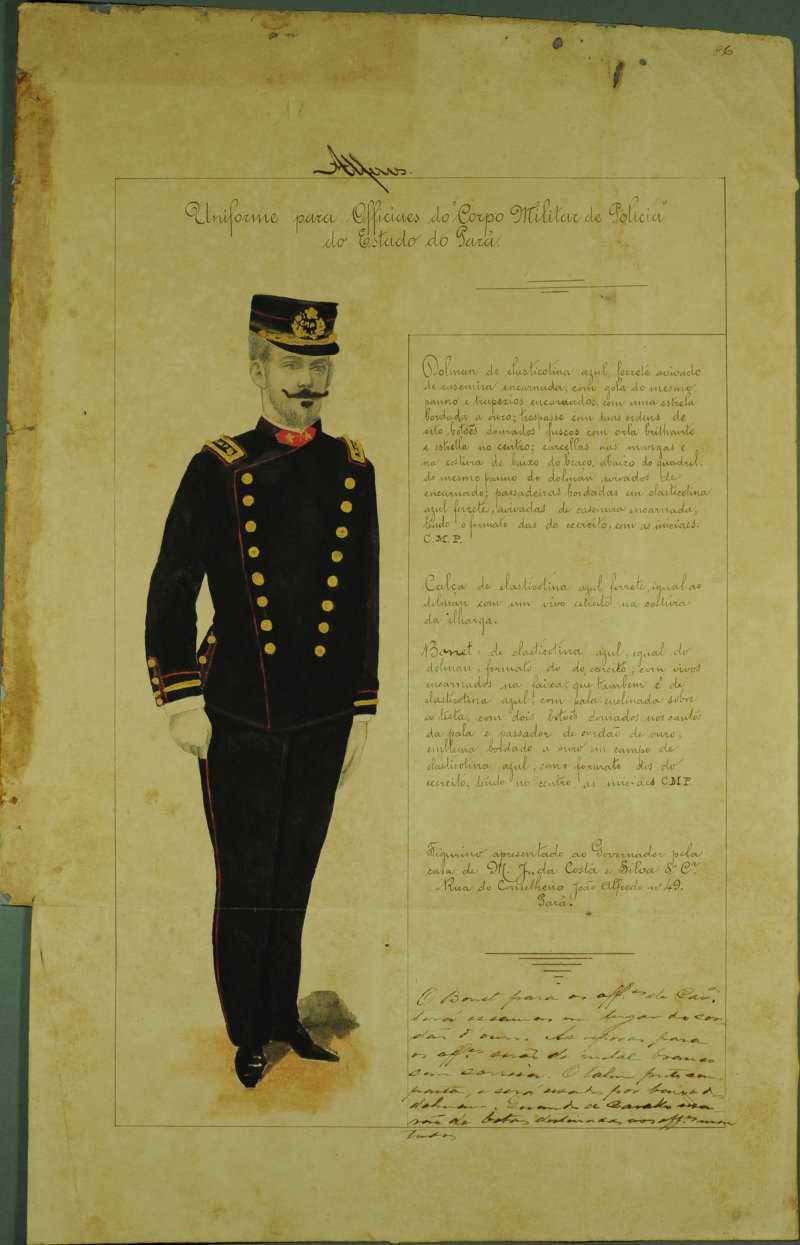 86
Alferes.
Uniforme para Officiaes do "Corpo Militar de Policia"
do Estado do Pará.
CMP
Dolman de elasticotina azul ferrete avivado
de casemira encarnada, com gola do mesmo
panno e trapezios encarnados, com uma estrella
bordada a ouro; trespasse com duas ordens de
oito botões dourados fuscos com orla brilhante
e estrella no centro; carcellas nas mangas e
na costura de baixo do braço, abaixo do quadril,
do mesmo panno do dolman avivados de
encarnado; passadeiras bordadas em elasticotina
azul ferrete, avivadas de casemira encarnada,
tendo o formato das do exercito, com as iniciaes:
C.M.P.
Calça de elasticotina azul ferrete, igual ao
dolman com um vivo estreito na costura
da ilharga.
Bonet de elasticotina azul, igual do
dolman, formato do do exercito, com vivos
encarnados na faixa, que tambem é de
elasticotina azul, com pala inclinada sobre
a testa, com dois botões dourados nos cantos
da pala e passador de cordão de ouro;
emblema bordado a ouro em campo de
elasticotina azul, como formato dos do
exercito, tendo no centro as iniciaes C.M.P.
Figurino apresentado ao Governador pela
casa de M. J. da Costa e Silva & Cª.
Rua do Conselheiro João Alfredo nº 49.
Pará.
O Bonet para os off.es de Cav.ª
terá escamas em lugar do cor
dão d'ouro. As esporas para
os off.es serão de metal branco
com correia. O talim preto com
pasta, e será usado por baixo do
dolman. Quando a cavallo usa
rão de botas destinadas aos off.es mon
tados